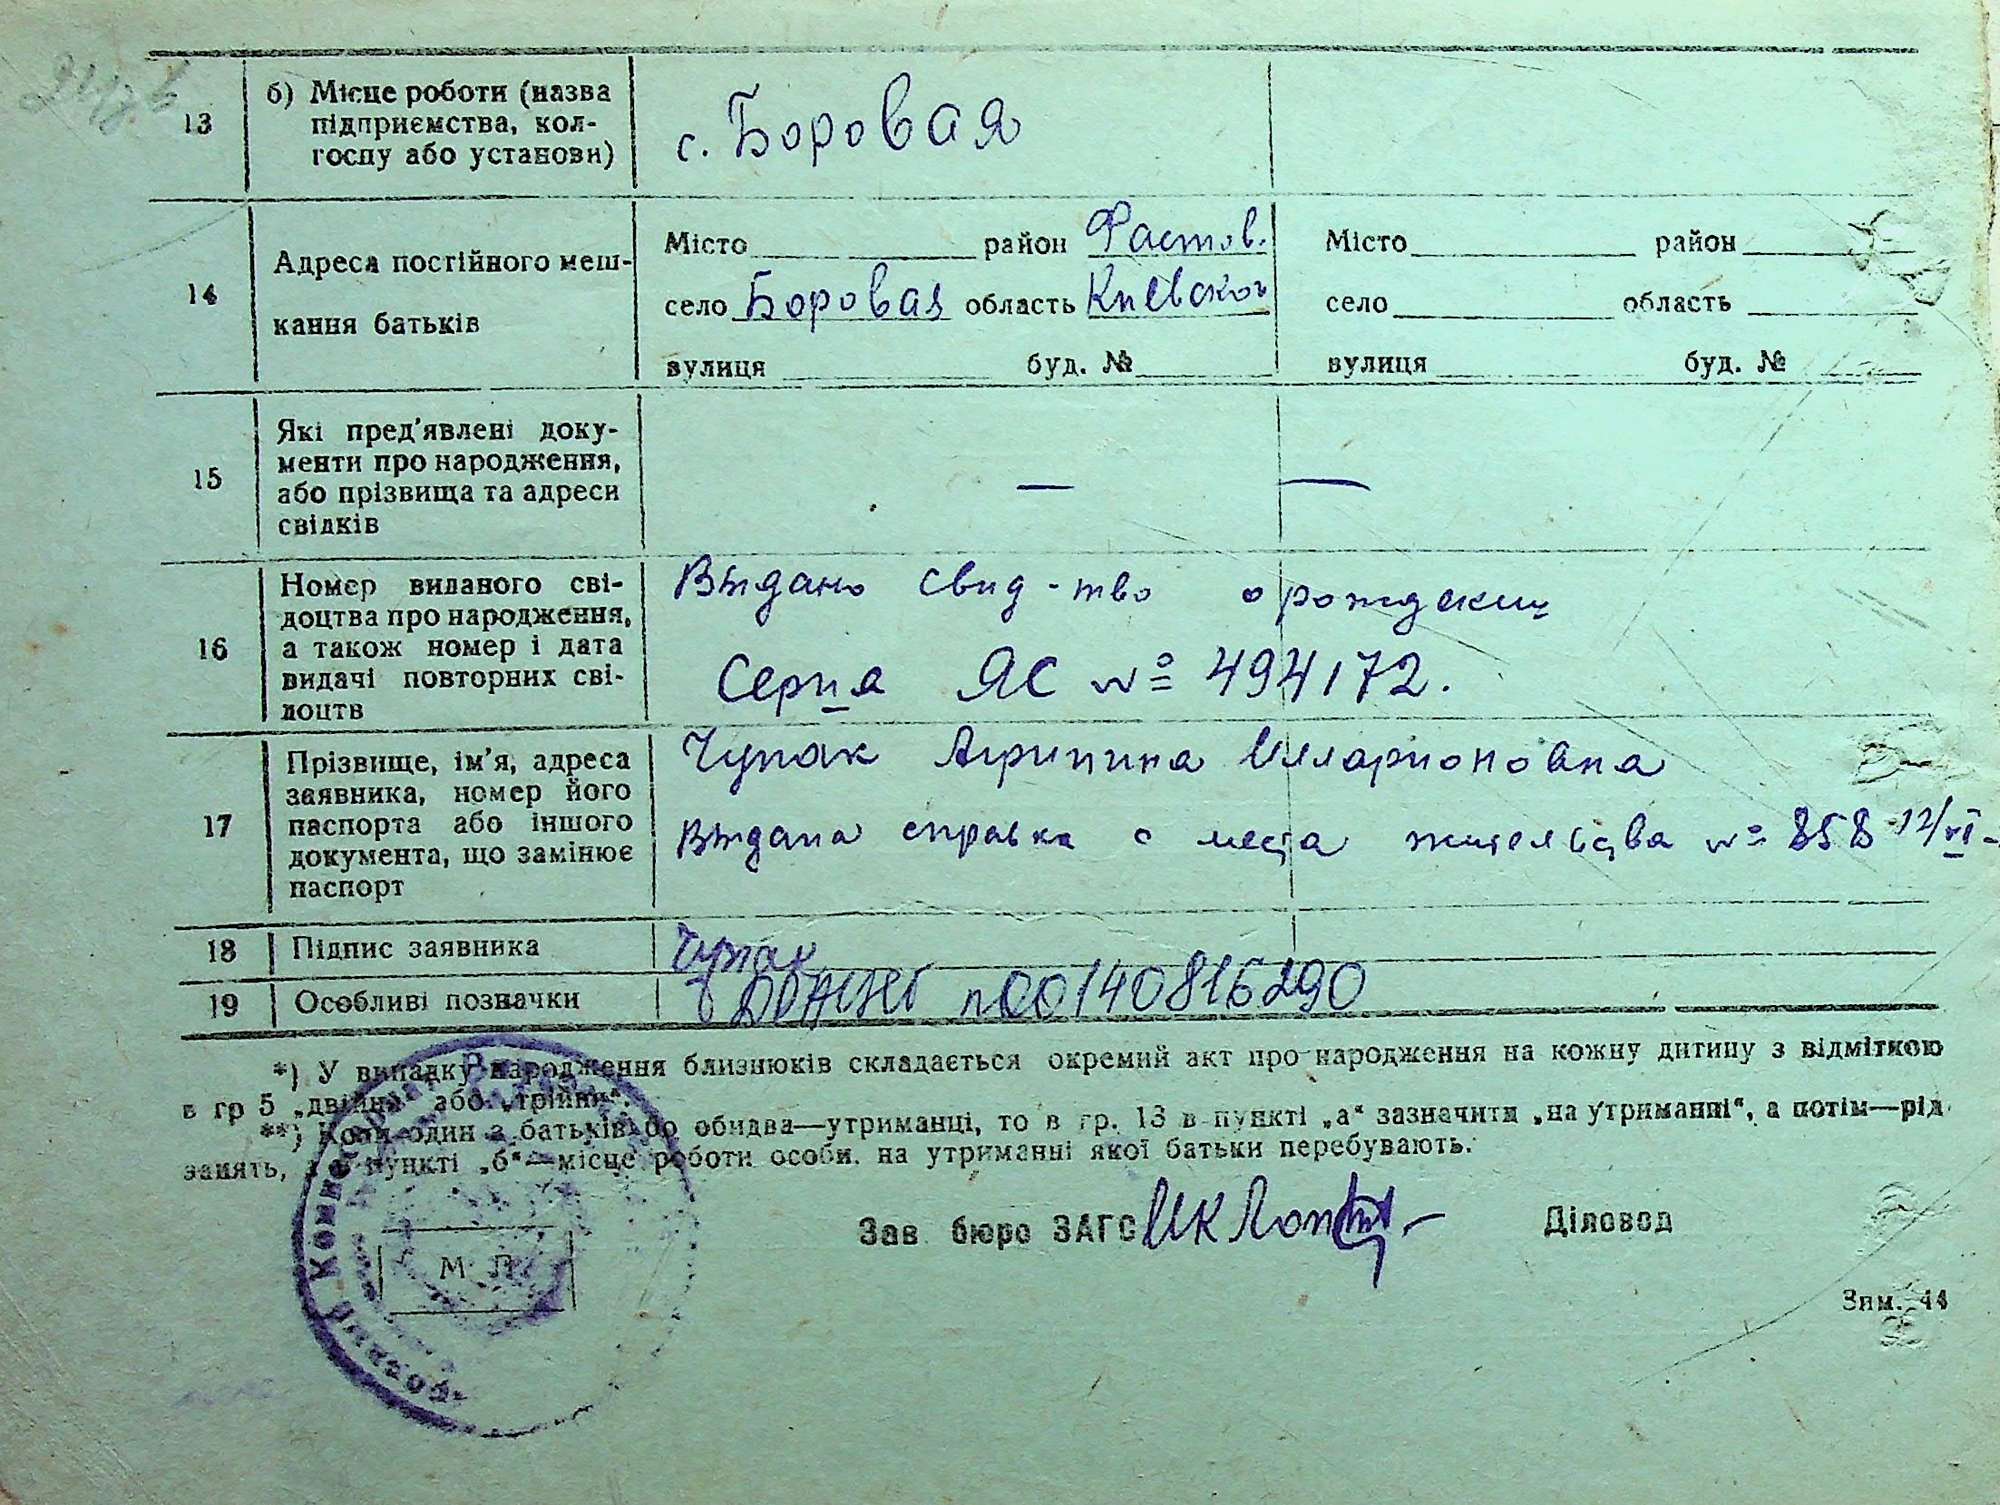 13
б) Місце роботи (назва
підприємства, кол-
госпу або установи)
с. Боровая
14
Адреса постійного меш-
кання батьків
Місто район Фастов.
село Боровая область Киевской
вулиця буд. №
Місто район
село область
вулиця буд. №
15
Які пред'явлені доку-
менти про народження,
або прізвища та адреси
свідків
— —
16
Номер виданого сві-
доцтва про народження,
а також номер і дата
видачі повторних сві-
доцтв
Выдано свид-тво о рождении
Серия ЯС № 494172.
17
Прізвище, ім'я, адреса
заявника, номер його
паспорта або іншого
документа, що замінює
паспорт
Чупак Агрипина Илларионовна
Выдана справка с места жительства № 858 12/VI-
18
Підпис заявника
Чупак
19
Особливі позначки
00140816290
*) У випадку народження близнюків складається окремий акт про народження на кожну дитину з відміткою
в гр 5 „двійня" або „трійня".
**) Коли один з батьків або обидва—утриманці, то в гр. 13 в пункті „а" зазначити „на утриманні", а потім—рід
занять, а в пункті „б"—місце роботи особи, на утриманні якої батьки перебувають.
Зав бюро ЗАГС
Діловод
М П
Зам. 44